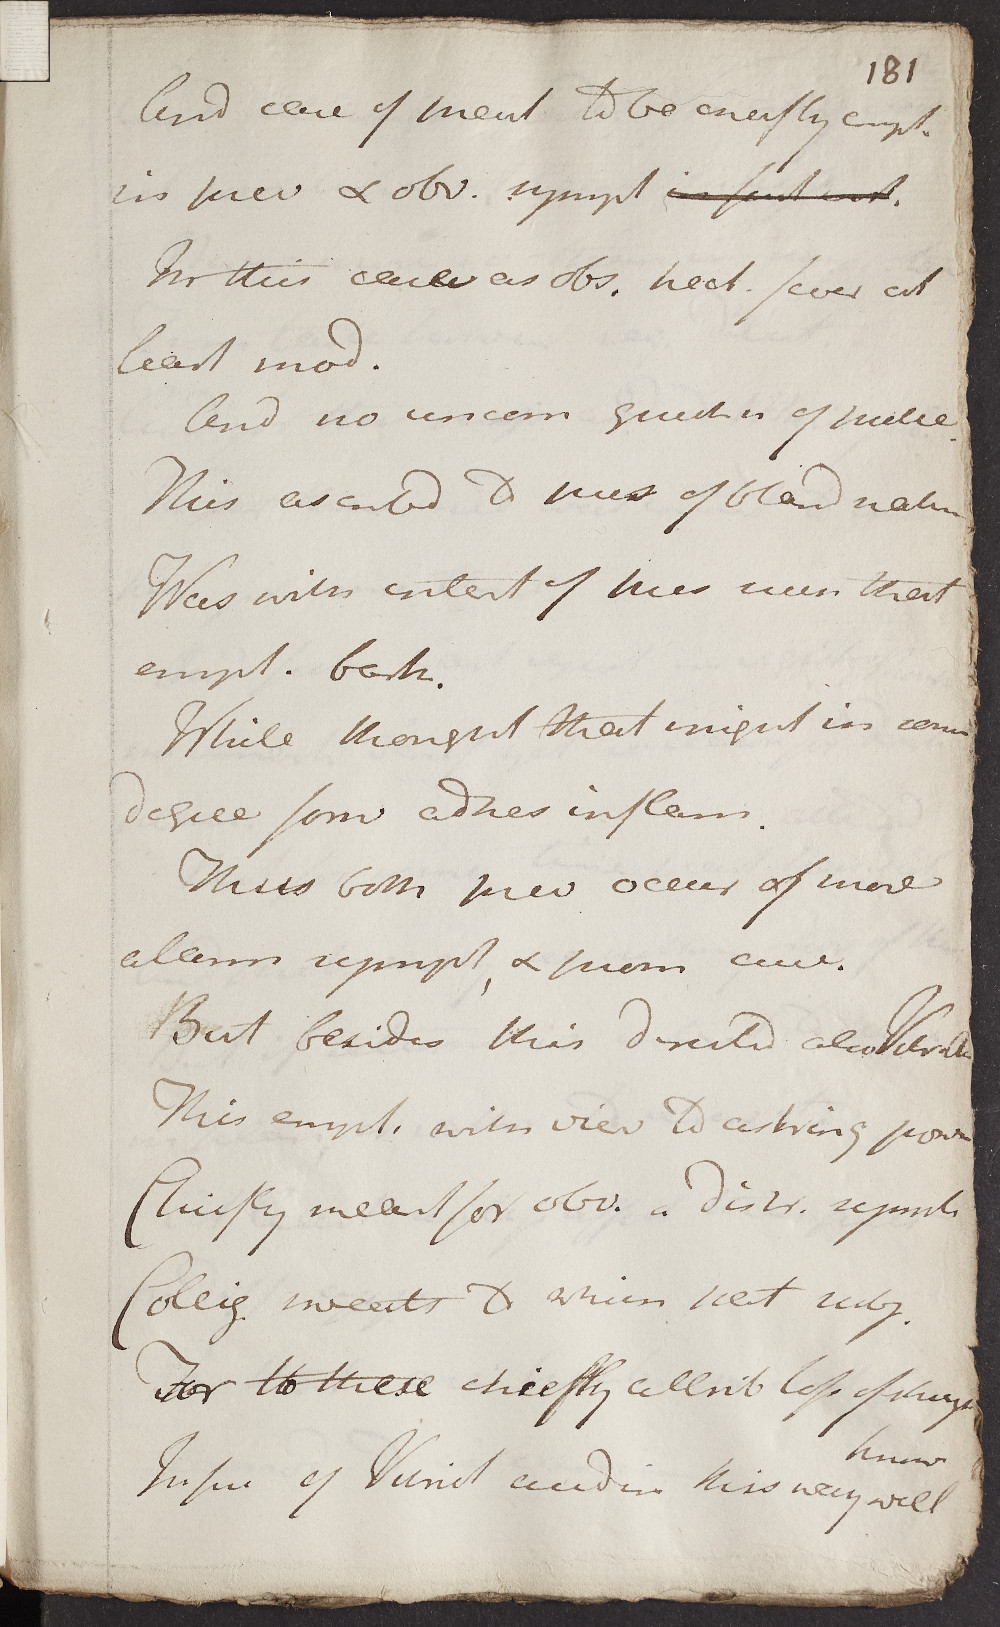 181
And cure of
to be chiefly empt.
in prev & obv. sympt
In this case as obs. hect. fever at
least mod.
And no uncom of pulse.
This ascribed to pus of bland natur
Was with extent of pus seen that
empt. bark.
While thought that might in some
degree form adhes inflam.
Thus both prev occur of more
alarm sympt, & prom cure.
But besides this directed also Vitriol
This empt. with view to astring power
Chiefly meant for obv. a distr. sympt
Collig. sweats to which pat subj.
For to these chiefly attrib loss of
know
of Vitriol acid in this way will